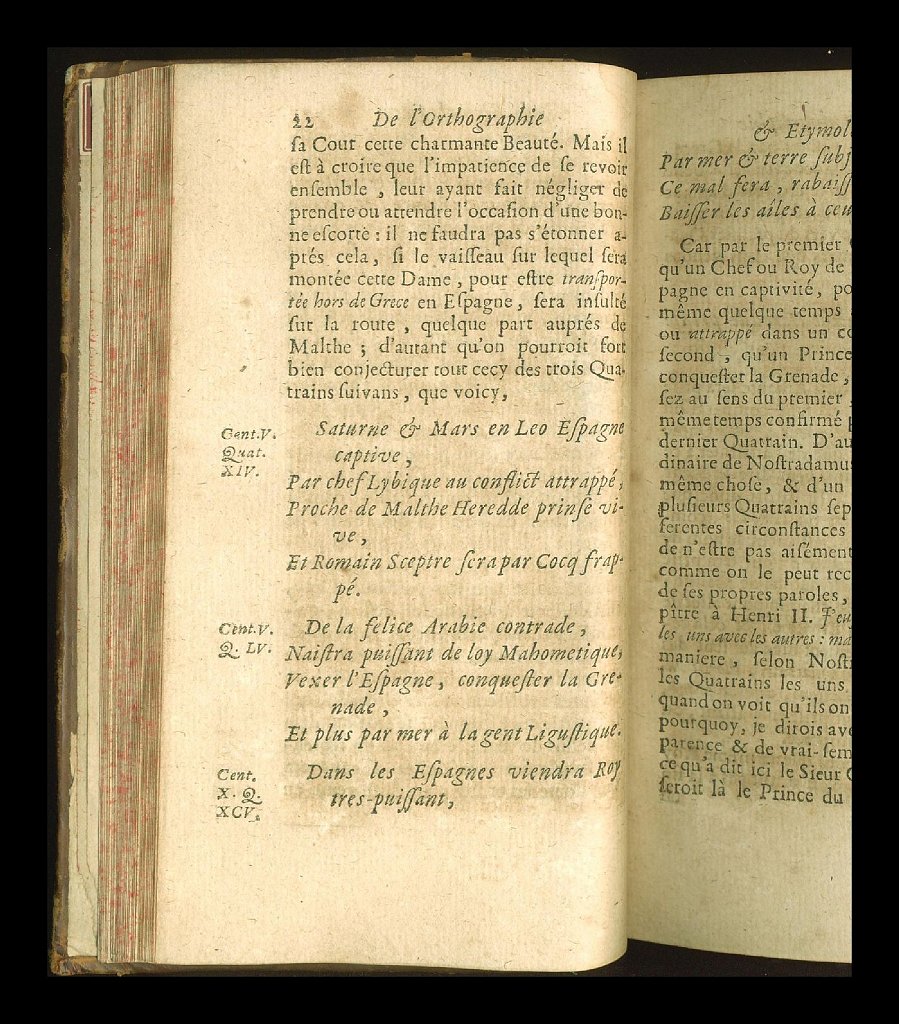 22 De l'Orthographie
ſa Cour cette charmante Beauté. Mais il
eſt à croire que l'impatience de ſe revoir
enſemble, leur ayant fait négliger de
prendre ou attendre l'occaſion d'une bon-
ne eſcorte : il ne faudra pas s'étonner a-
prés cela, ſi le vaiſſeau ſur lequel ſera
montée cette Dame, pour eſtre tranſpor-
tée hors de Grece en Eſpagne, ſera inſulté
ſur la route, quelque part auprés de
Malthe ; d'autant qu'on pourroit fort
bien conjecturer tout cecy des trois Qua-
trains ſuivans, que voicy,
Cent. V.
Quat.
XIV.
Saturne & Mars en Leo Eſpagne
captive,
Par chef Lybique au conflict attrappé,
Proche de Malthe Heredde prinſe vi-
ve,
Et Romain Sceptre ſera par Cocq frap-
pé.
Cent. V.
Q. LV.
De la felice Arabie contrade,
Naiſtra puiſſant de loy Mahometique,
Vexer l'Eſpagne, conqueſter la Gre-
nade,
Et plus par mer à la gent Liguſtique.
Cent.
X. Q.
XCV.
Dans les Eſpagnes viendra Roy
tres-puiſſant,
& Etymol
Par mer & terre ſubj
Ce mal fera, rabaiſſ
Baiſſer les aîles à ceu
Car par le premier
qu'un Chef ou Roy de
pagne en captivité, po
même quelque temps
ou attrappé dans un co
ſecond, qu'un Prince
conqueſter la Grenade,
ſez au ſens du premier
même temps confirmé p
dernier Quatrain. D'au
dinaire de Noſtradamus
même choſe, & d'un
pluſieurs Quatrains ſep
ferentes circonſtances
de n'eſtre pas aiſément
comme on le peut rec
de ſes propres paroles,
pître à Henri II. J'euſ
les uns avec les autres : ma
maniere, ſelon Noſt
les Quatrains les uns
quand on voit qu'ils on
pourquoy, je dirois ave
parence & de vrai-ſem
ce qu'a dit ici le Sieur
ſeroit là le Prince du